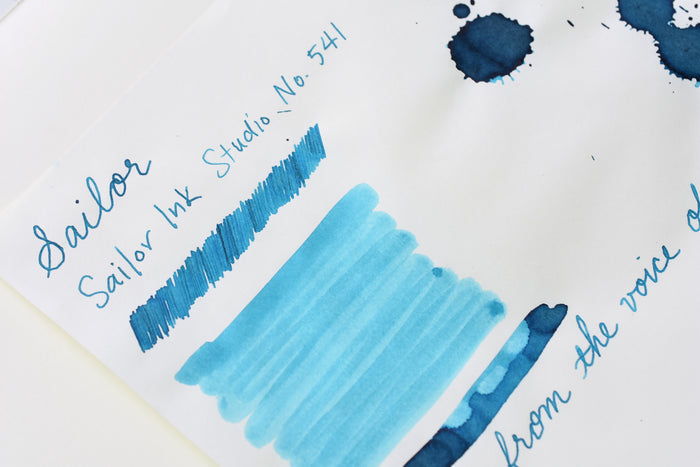 Sailor
Sailor Ink Studio No. 541
from the voice of